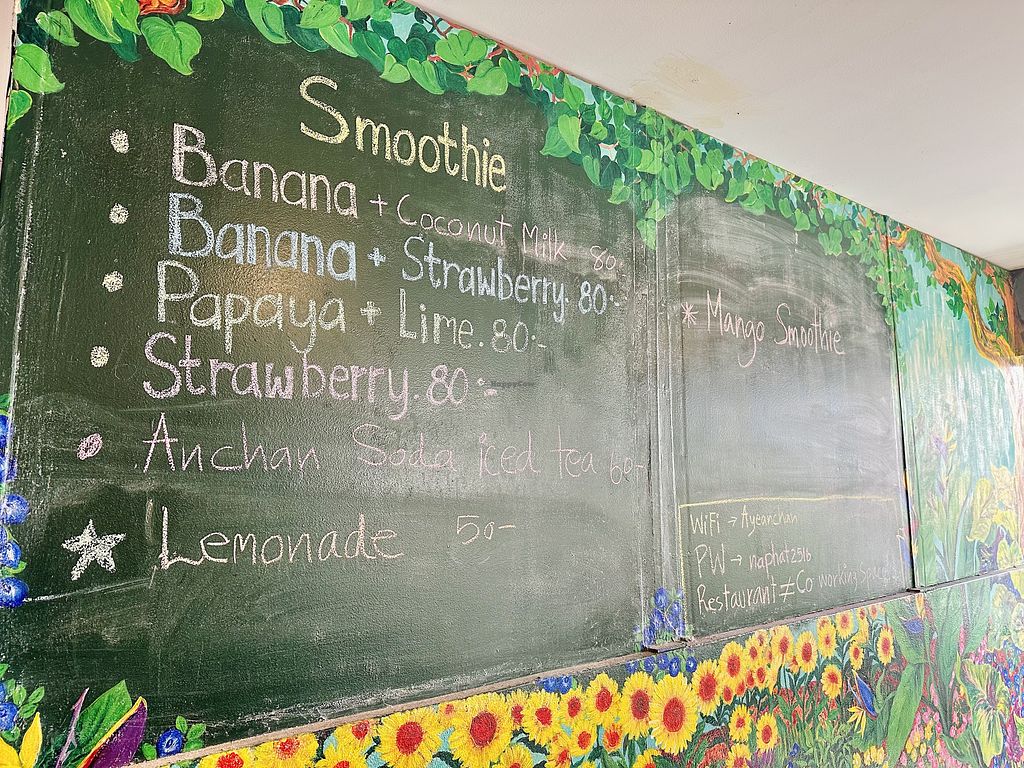 Smoothie
Banana + Coconut Milk 80.-
Banana + Strawberry. 80.-
Papaya + Lime. 80.-
Strawberry. 80.-
Anchan Soda iced tea 60-
Lemonade 50-
* Mango Smoothie
WiFi → Ayeanchan
PW → naphat2516
Restaurant ≠ Co working Space
HappyCow